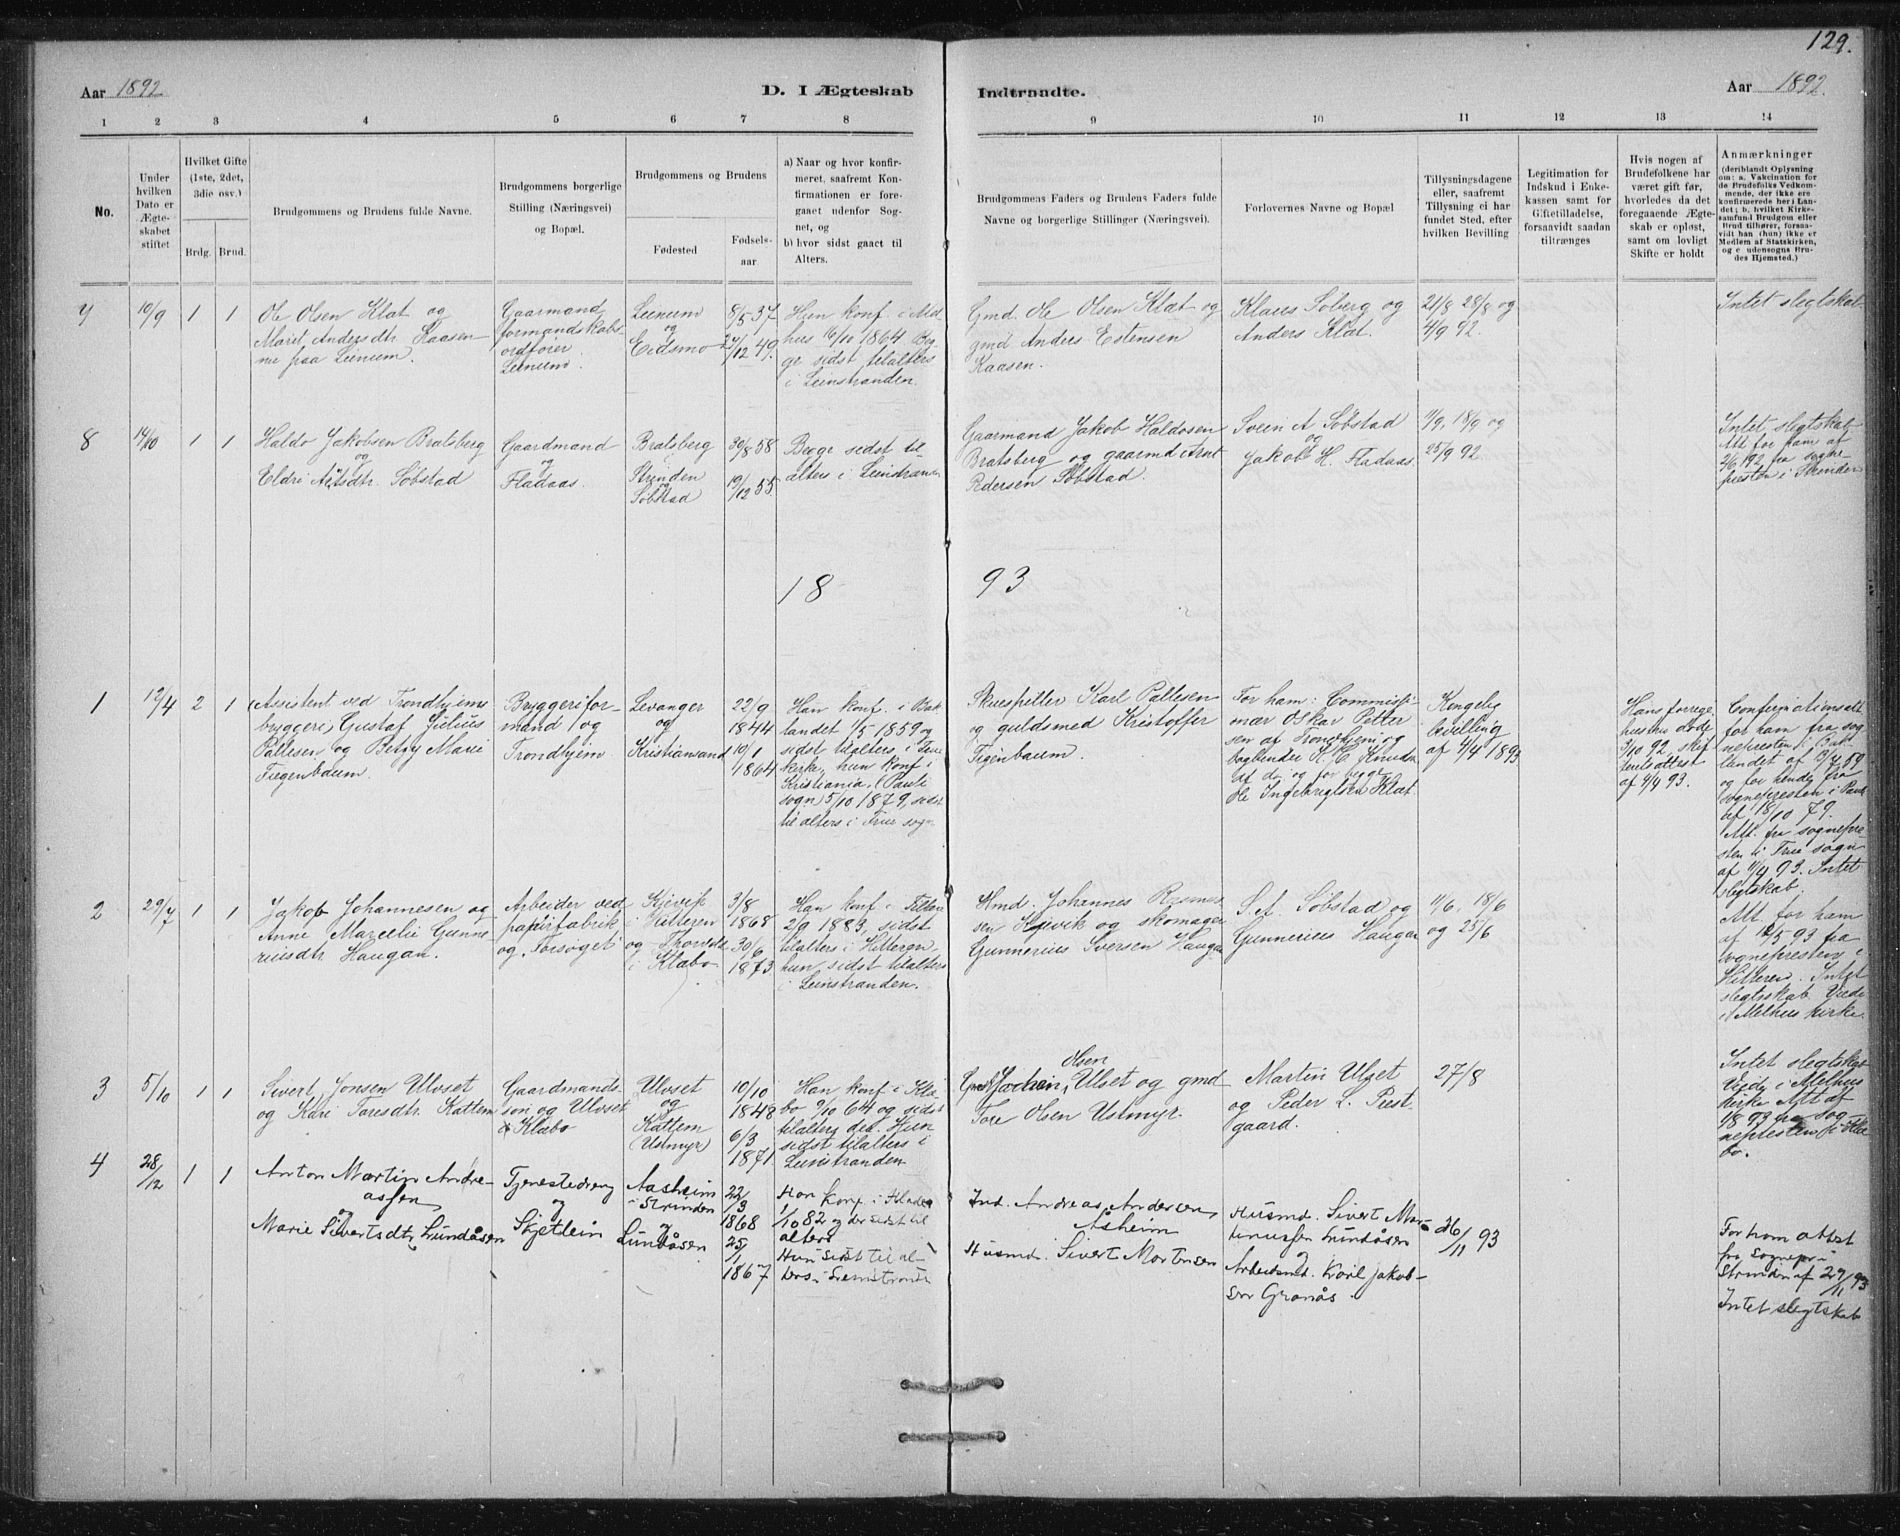 129.
Aar 1892
D. I Ægteskab
Indtraadte.
Aar 1892.
1 2 3 3 4 5 6 7 8
9 10 11 12 13 14
No.
Under
hvilken
Dato er
Ægte-
skabet
stiftet
Hvilket Gifte
(1ste, 2det,
3die osv.)
Brdg. Brud.
Brudgommens og Brudens fulde Navne.
Brudgommens borgerlige
Stilling (Næringsvei)
og Bopæl.
Brudgommens og Brudens
Fødested
Fødsels-
aar
a) Naar og hvor konfir-
meret, saafremt Kon-
firmationen er fore-
gaaet udenfor Sog-
net, og
b) hvor sidst gaact til
Alters.
Brudgommens Faders og Brudens Faders fulde
Navne og borgerlige Stillinger (Næringsvei).
Forlovernes Navne og Bopæl
Tillysningsdagene
eller, saafremt
Tillysning ei har
fundet Sted, efter
hvilken Bevilling
Legitimation for
Indskud i Enke-
kassen samt for
Giftetilladelse,
forsaavidt saadan
tiltrænges
Hvis nogen af
Brudefolkene har
været gift før,
hvorledes da det
foregaaende Ægte-
skab er opløst,
samt om lovligt
Skifte er holdt
Anmærkninger
(deriblandt Oplysning
om: a. Vakcination for
de Brudefolks Vedkom-
mende, der ikke ere
konfirmerede her i Lan-
det; b, hvilket Kirke-
samfund Brudgom eller
Brud tilhører, forsaa-
vidt han (hun) ikke er
Medlem af Statskirken,
og c udensogns Bru-
des Hjemsted.)
7 10/9 1 1
Ole Olsen Klæt og
Marit Andersdtr. Kaasen
paa Leinum.
Gaarmand
formandskabs
ordfører
Leinum.
Leinum
og
Eidsmo
8/5 37
27/12 49.
Hun konf. i Mel
hus 16/10 1864. Beg
ge sidst tilalters
i Leinstranden.
Gmd. Ole Olsen Klæt og
gmd Anders Estensen
Kaasen.
Klaus Soberg og
Anders Klæt.
21/8 28/8 og
4/9 92.
Intet slegtskab
8 14/10 1 1
Haldo Jakobsen Bratsberg
og
Eldri Arntsdtr. Söbstad
Gaardmand
og
Fladaas.
Bratsberg
Strinden
og
Söbstad
30/8 58
19/12 55
Begge sidst til
alters i Leinstranden
Gaarmand Jakob Haldosen
Bratsberg og gaarmd Arnt
Pedersen Söbstad.
Svein A Söbstad
og
Jakob H. Fladaas.
11/9, 18/9 og
25/9 92.
Intet slegtskab
Att for ham af
2/6 192 fra sogne-
presten i Strinden
18 93
1 12/4 2 1
(Assistent ved Trondhjems
bryggeri) Gustaf Julius
Pallesen og Betzy Marie
Fiegenbaum.
Bryggerifor-
mand og
Trondhjem
Levanger
og
Kristiansand
22/9
1844
10/1
1864
Han konf. i Bak
landet 1/5 1859 og
sidst tilalters i Frue
kirke, hun konf i
Kristiania, (Pauli
sogn 5/10 1879, sidst
til alters i Frue sogn
Skuespiller Karl Pallesen
og guldsmed Kristoffer
Figenbaum.
For ham: Commissi-
onær Oskar Petter
sen af Trondhjem og
bogbinder K. C. Knud
og for begge
Ole Ingebrigtsen Klæt
Kongelig
bevilling
af 4/4 1893
Hans forrige
hustru døde
3/10 92. skif
teretsattest
af 4/4 93.
Confirmationsatt
for ham fra sog
nepresten i Bak
landet af 13/7 59
og for hende fra
sognepresten i Pauli
af 18/10 79.
Att. fra sognepre-
sten ti Frue sogn
af 11/4 93. Intet
slegtskab.
2 29/7 1 1
Jakob Johannesen og
Anne Marcelie Gunne
riusdtr Haugan.
Arbeider ved
papirfabrik
og Forsöget
Kjevik
Hitteren
og
i Klæbo
3/8
1868
30/6
1873
Han konf. i
2/9 1883, sidst
tilalters i Hitteren,
hun sidst tilalters
i Leinstranden.
Hmd. Johannes Rasmus
sen Kjevik og skomager
Gunnerius Iversen Haugan
S. A. Söbstad og
Gunnerius Haugan
11/6, 18/6
og 25/6
Att. for ham
af 12/5 93 fra
sognepresten i
Hitteren. Intet
slegtskab. Viede
i Melhus kirke.
3 5/10 1 1
Sivert Jonsen Ulvset
og Kari Toresdtr. Kattem
Gaardmands-
son og Ulvset
Klæbo
Ulvset
og
Kattem
(Ustmyr)
10/10
1848
6/3
1871
Han konf. i Klæ
bo 9/10 64 og sidst
tilalters der. Hun
sidst tilalters i
Leinstranden
Olsen
Ulset og gmd
Tore Olsen Ustmyr.
Martin Ulset
og Peder L. Prest-
gaard.
27/8
Intet slegtskab
Viede i Melhus
kirke Att af
1/8 93 fra sog-
nepresten i Klæ
bo.
4 28/12 1 1
Anton Martin Andre-
assen
og
Marie Sivertsdtr. Lundåsen
Tjenestedreng
og
Skjetlein
Aasheim
i Strinden
og
Lundåsen
22/3
1868
25/1
1867
Han konf. i Klæbo
1/10 82 og der sidst til
alters
Hun sidst til al-
ters i Leinstranden
Ind. Andreas Andersen
Åsheim
Husmd. Sivert Mortensen
Husmd. Sivert Mar-
tinussen Lundåsen
og
Arbeidsmd. Karl Jakob-
sen Granås.
26/11 93
For ham attest
fra Sognepr i
Strinden af 29/11 93
Intet slegtskab